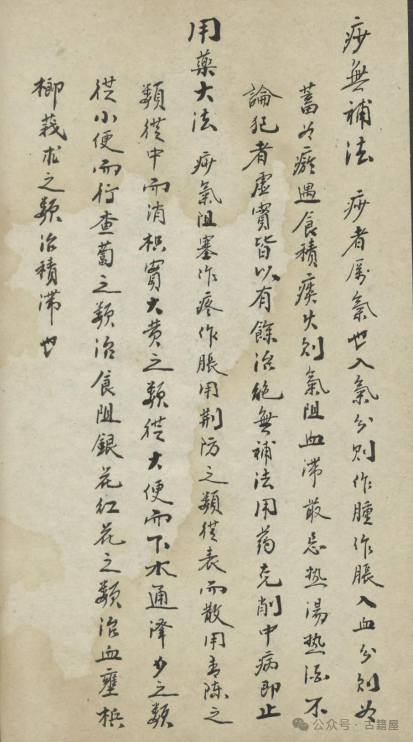 痧無補法　痧者厲氣也入氣分則作腫作脹入血分則為
蓄為瘀遇食積痰火則氣阻血滯最忌热湯热酒不
論犯者虛實皆以有餘治絕無補法用药克削中病即止
用藥大法　痧氣阻塞作疼作脹用荆防之類從表而散用青陳之
類從中而消枳實大黄之類從大便而下水通澤夕之類
從小便而行查蔔之類治食阻銀花紅花之類治血壅梹
榔莪朮之類治積滯也
公众号 · 古籍屋